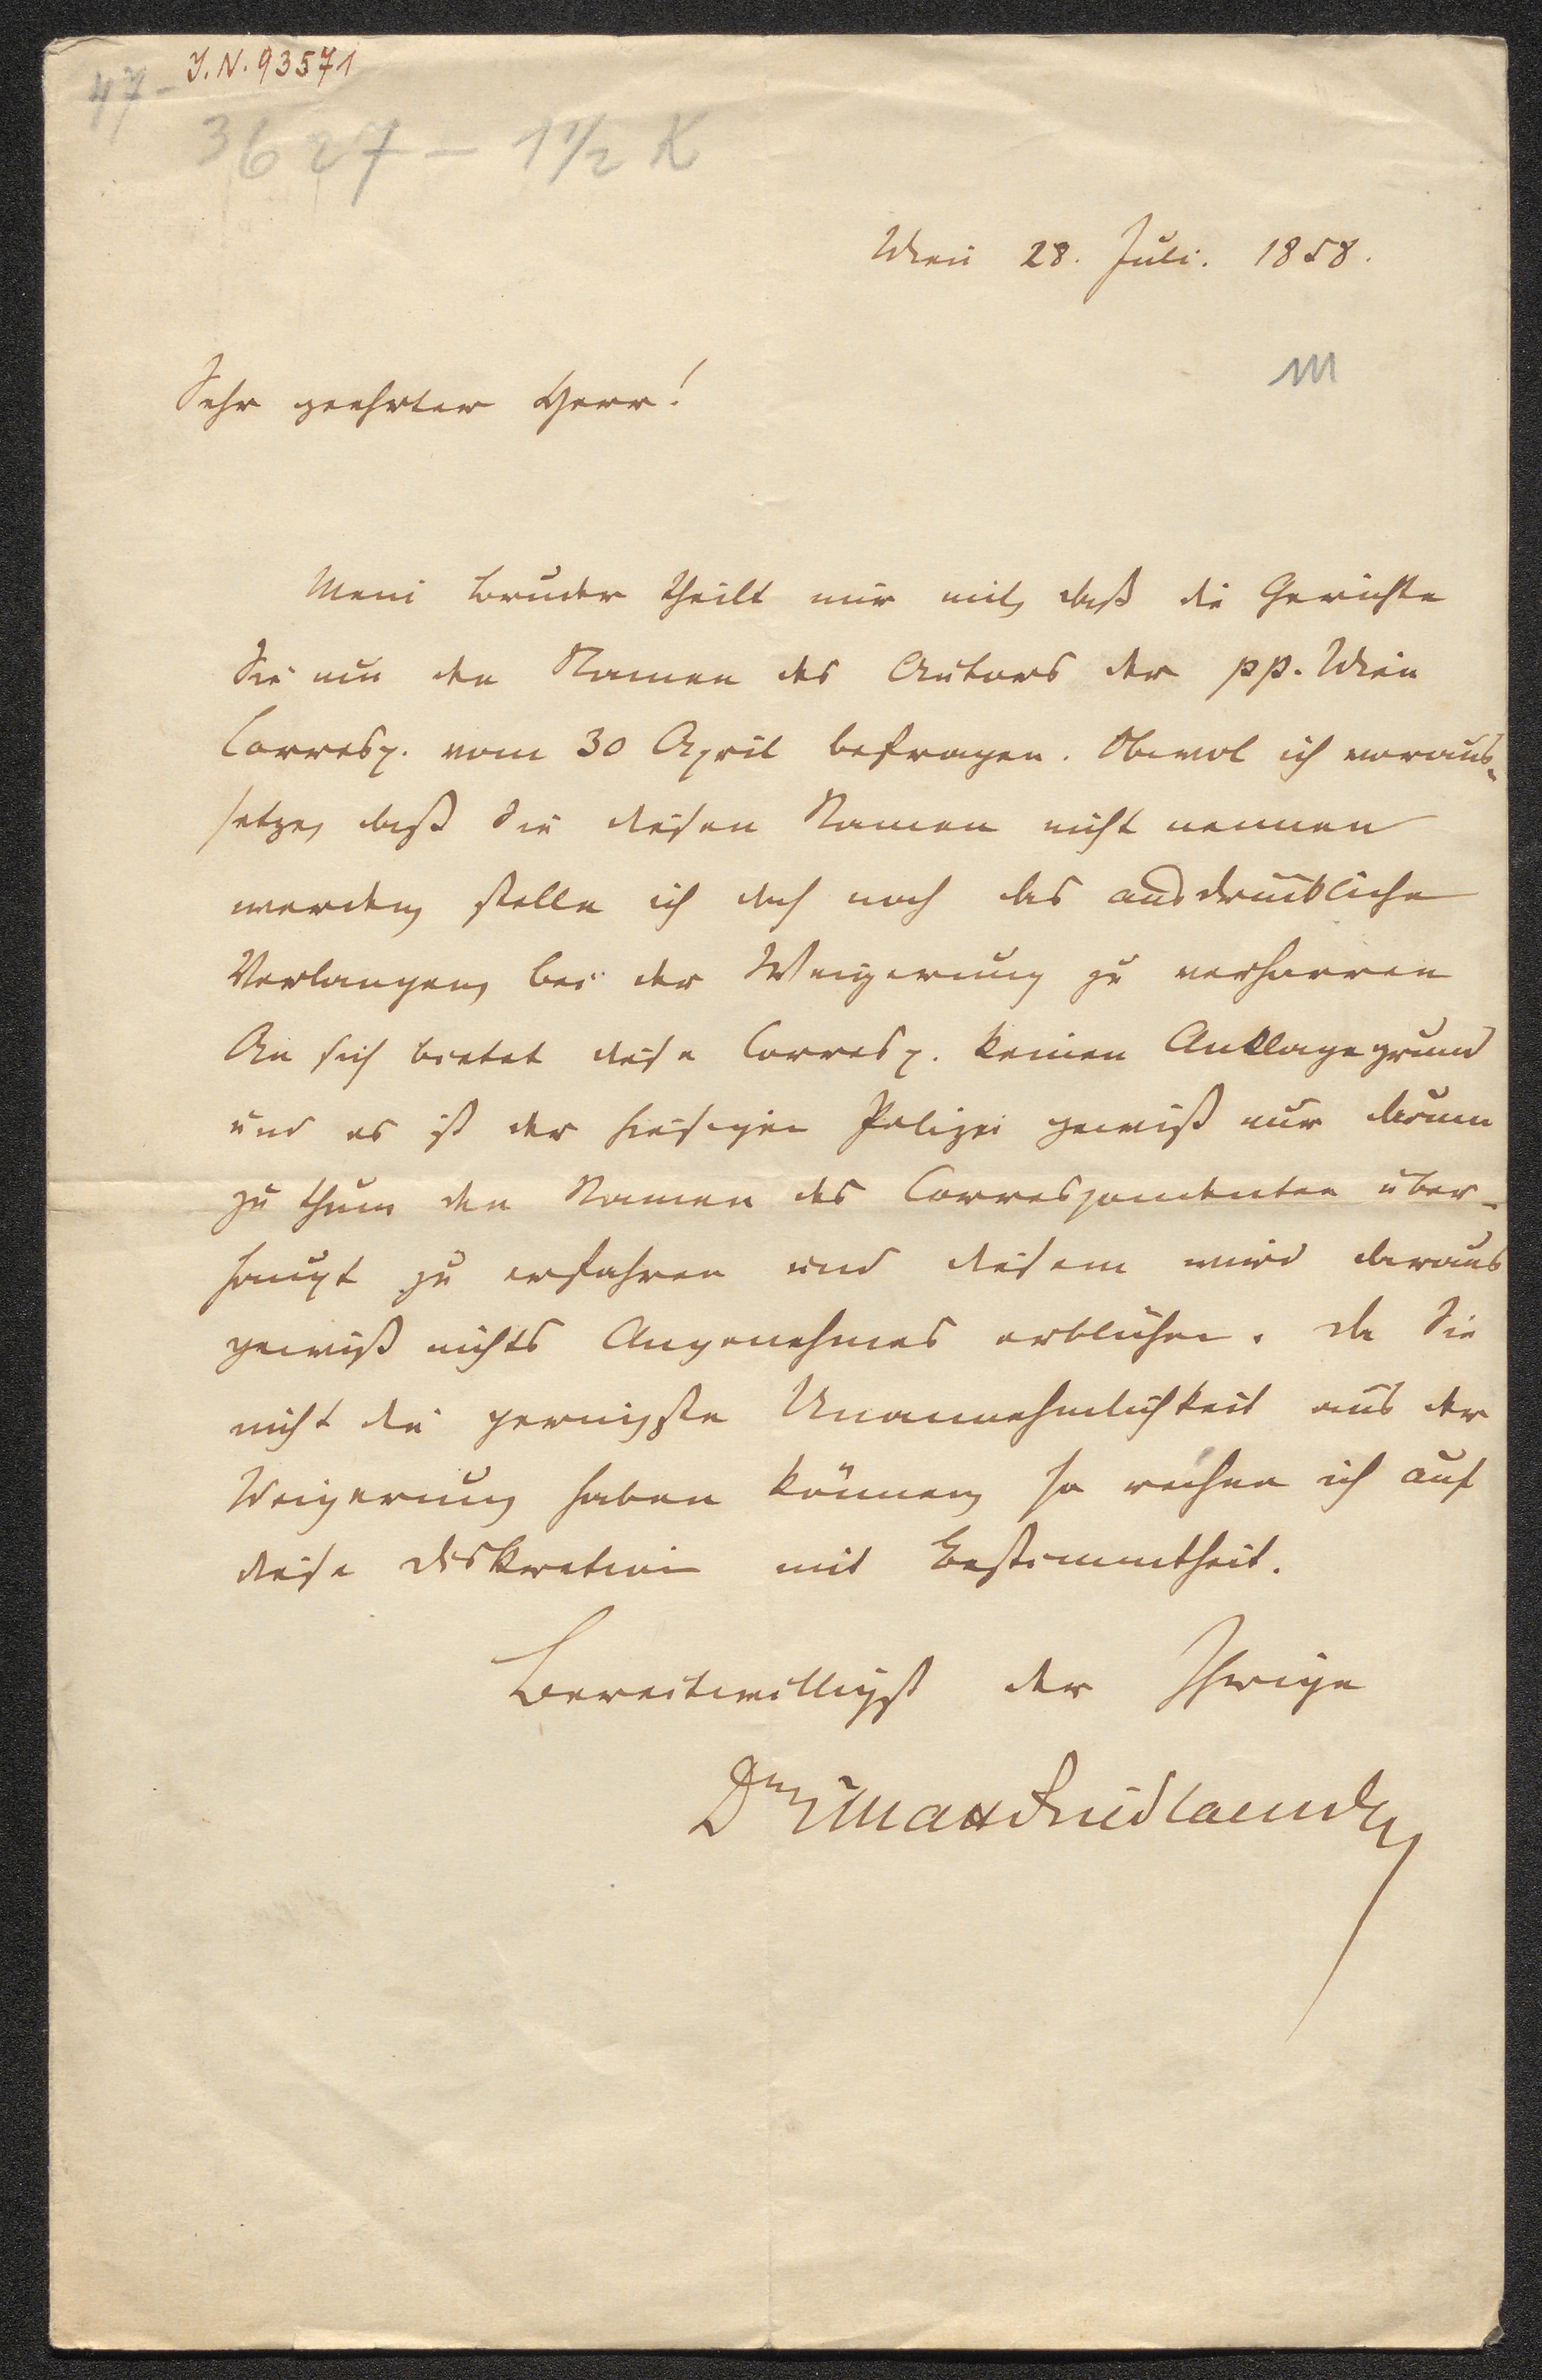 47-
J.N. 93571
3627 - 1 1/2 K
Wien 28. Juli. 1858.
m
Sehr geehrter Herr!
Mein Bruder theilt mir mit, daß die Gerichte
Sie um den Namen des Autors der pp. Wien
Corresp. vom 30 April befragen. Obwol ich voraus-
setze, daß Sie diesen Namen nicht nennen
werden, stelle ich doch noch das ausdrückliche
Verlangen, bei der Weigerung zu verharren
An sich bietet diese Corresp. keinen Anklagegrund
und es ist der hiesigen Polizei gewiß nur darum
zu thun den Namen des Correspondenten über-
haupt zu erfahren und diesem wird daraus
gewiß nichts Angenehmes erblühen. Da Sie
nicht die geringste Unannehmlichkeit aus der
Weigerung haben können, so rechne ich auf
diese Diskretion mit Bestimmtheit.
Bereitwilligst der Ihrige
Dr Max Friedlaender